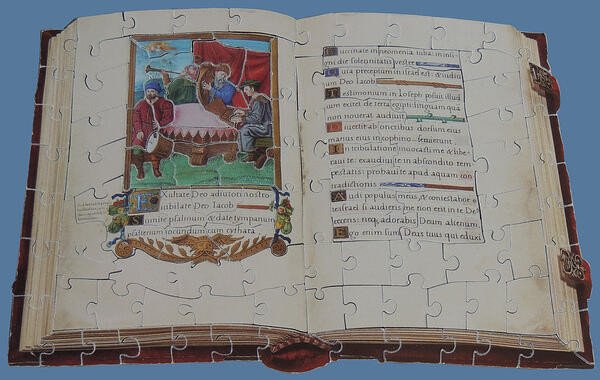 Exultate Deo adiutori nostro
iubilate Deo Iacob
Sumite psalmum & date tympanum
psalterium iocundum cum cythara
Buccinate in neomenia tuba: in insi
gni die solennitatis vestre
Quia preceptum in israel est: & iudiciu
Deo Iacob
Testimonium in Ioseph posuit illud
cum exiret de terra egipti: linguam quā
non noverat audivit
Divertit ab oneribus dorsum eius
manus eius in cophino servierunt
In tribulatione invocasti me & libe
ravi te: exaudivi te in abscondito tem
pestatis: probavi te apud aquam con
tradictionis
Audi populus meus & contestabor te
israel si audieris me non erit in te De
recens: neq adorabis Deum alienum
Ego enim sum Deus tuus qui eduxi